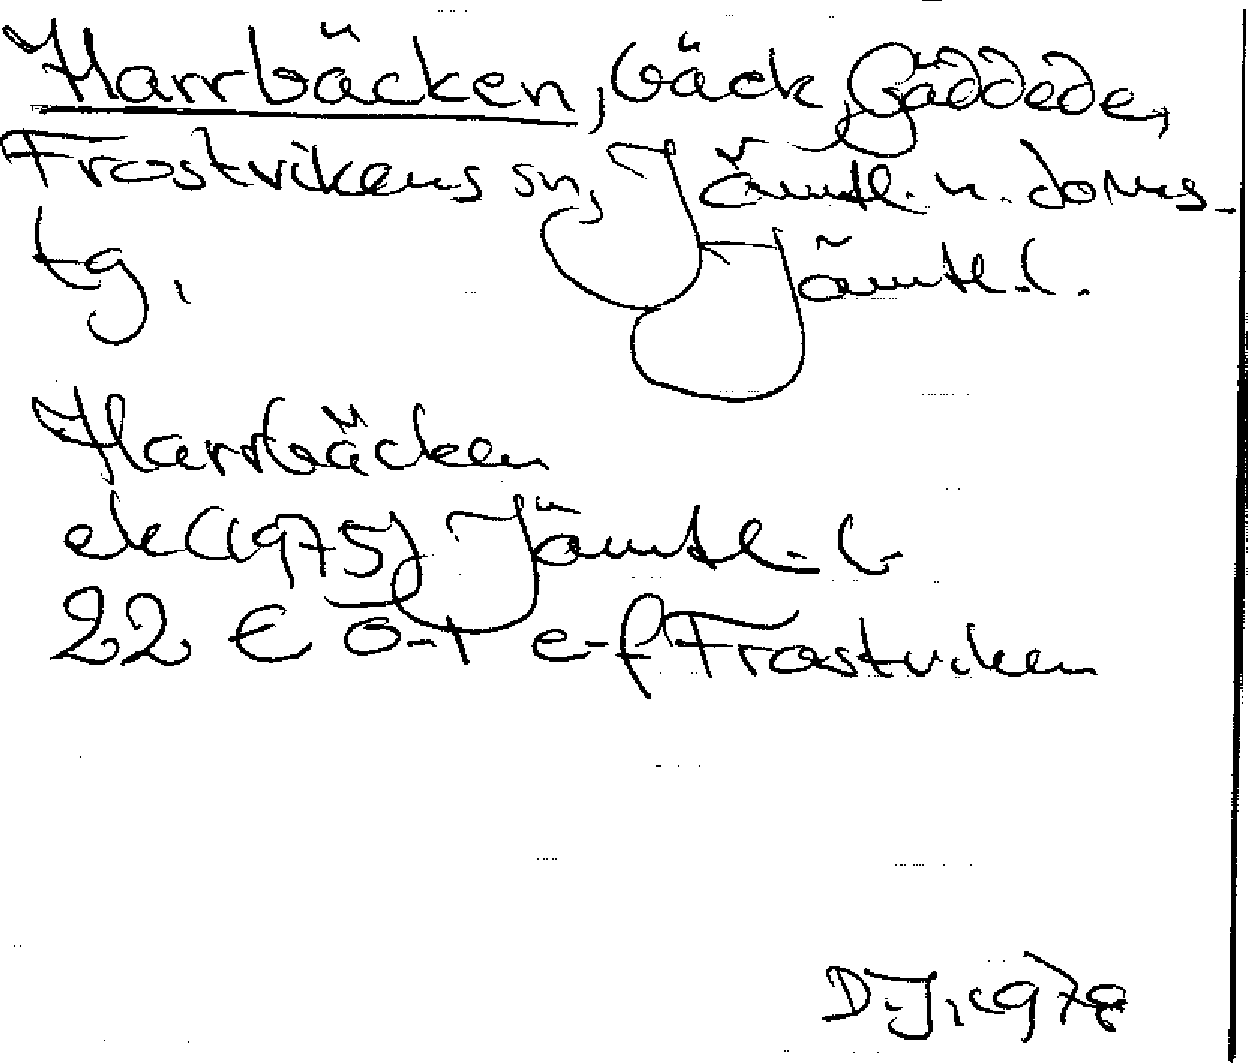 Harrbäcken, bäck, Gäddede,
Frostvikens sn, Jämtl. n. doms-
tg,
Jämtl. l.
Harrbäcken
ek (1975) Jämtl. l.
22 E Ö-t e-f Frostviken
D.J. 1978